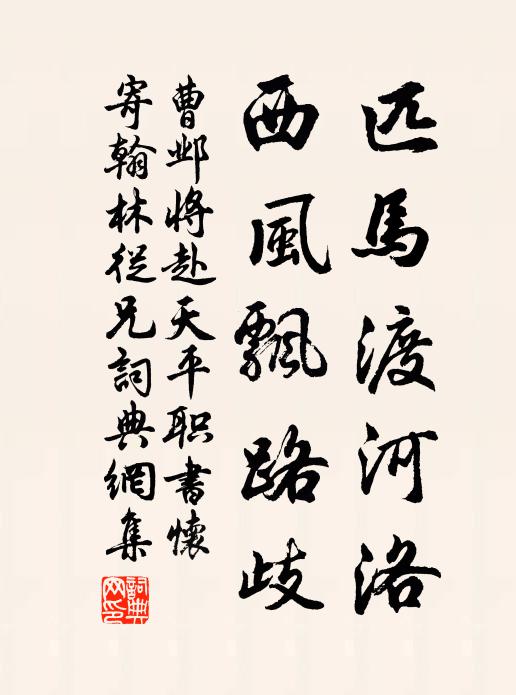 匹馬渡河洛
西風飄路歧
曹邺将赴天平职書懷
寄翰林從兄詞典網集
詞典網印